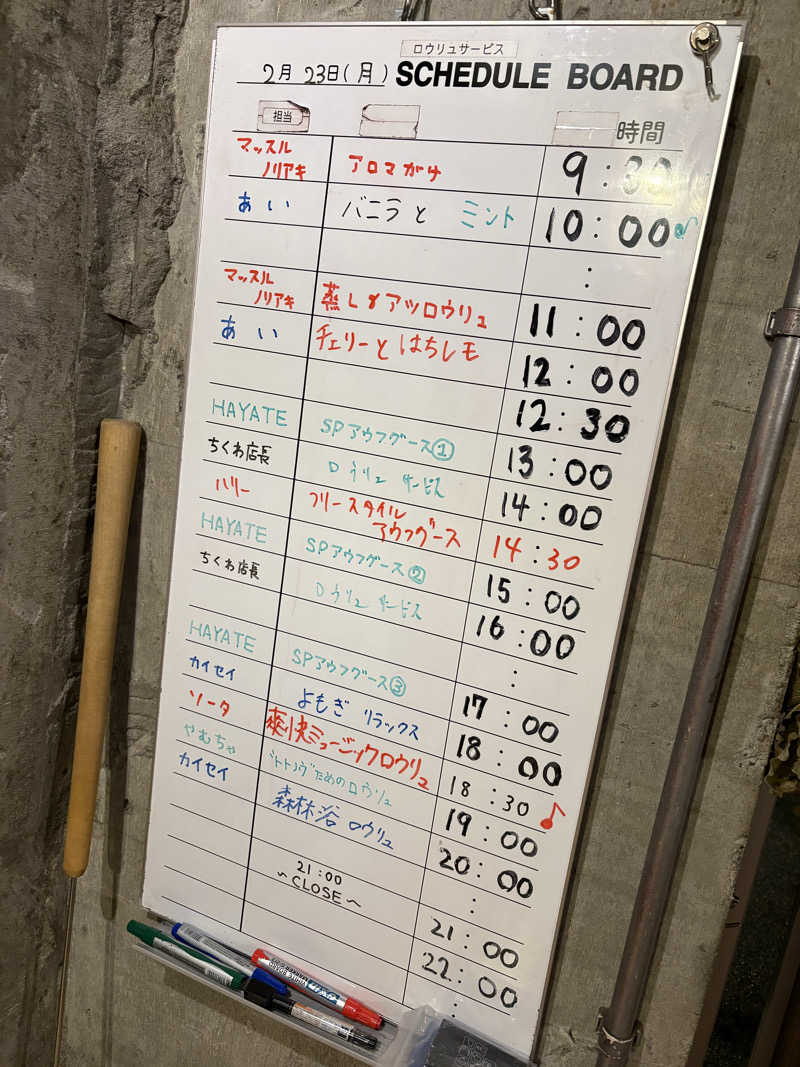 ロウリュサービス
2月 23日(月) SCHEDULE BOARD
担当 時間
マッスル ノリアキ アロマがけ 9:30
あい バニラと ミント 10:00
:
マッスル ノリアキ 蒸し&アツロウリュ 11:00
あい チェリーと はちレモ 12:00
12:30
HAYATE SPアウフグース① 13:00
ちくわ店長 ロウリュ サービス 14:00
ハリー フリースタイル アウフグース 14:30
HAYATE SPアウフグース② 15:00
ちくわ店長 ロウリュ サービス 16:00
:
HAYATE SPアウフグース③ 17:00
カイセイ よもぎ リラックス 18:00
ソータ 爽快ミュージックロウリュ 18:30♪
やむちゃ ためのロウリュ 19:00
カイセイ 森林浴 ロウリュ 20:00
:
21:00
~CLOSE~
21:00
22:00
: